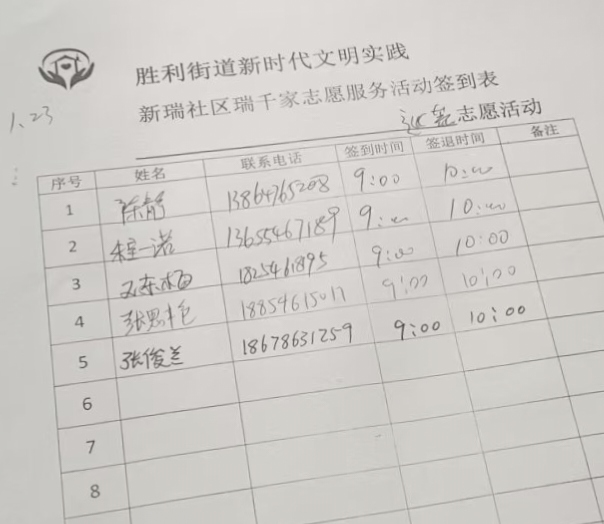 胜利街道新时代文明实践
新瑞社区瑞千家志愿服务活动签到表
1.23
志愿活动
序号 姓名 联系电话 签到时间 签退时间 备注
1 陈静 13864765208 9:00 10:00
2 一诺 13655467189 9:00 10:00
3 1825461895 9:00 10:00
4 张思 18854615017 9:00 10:00
5 张俊兰 18678631259 9:00 10:00
6
7
8